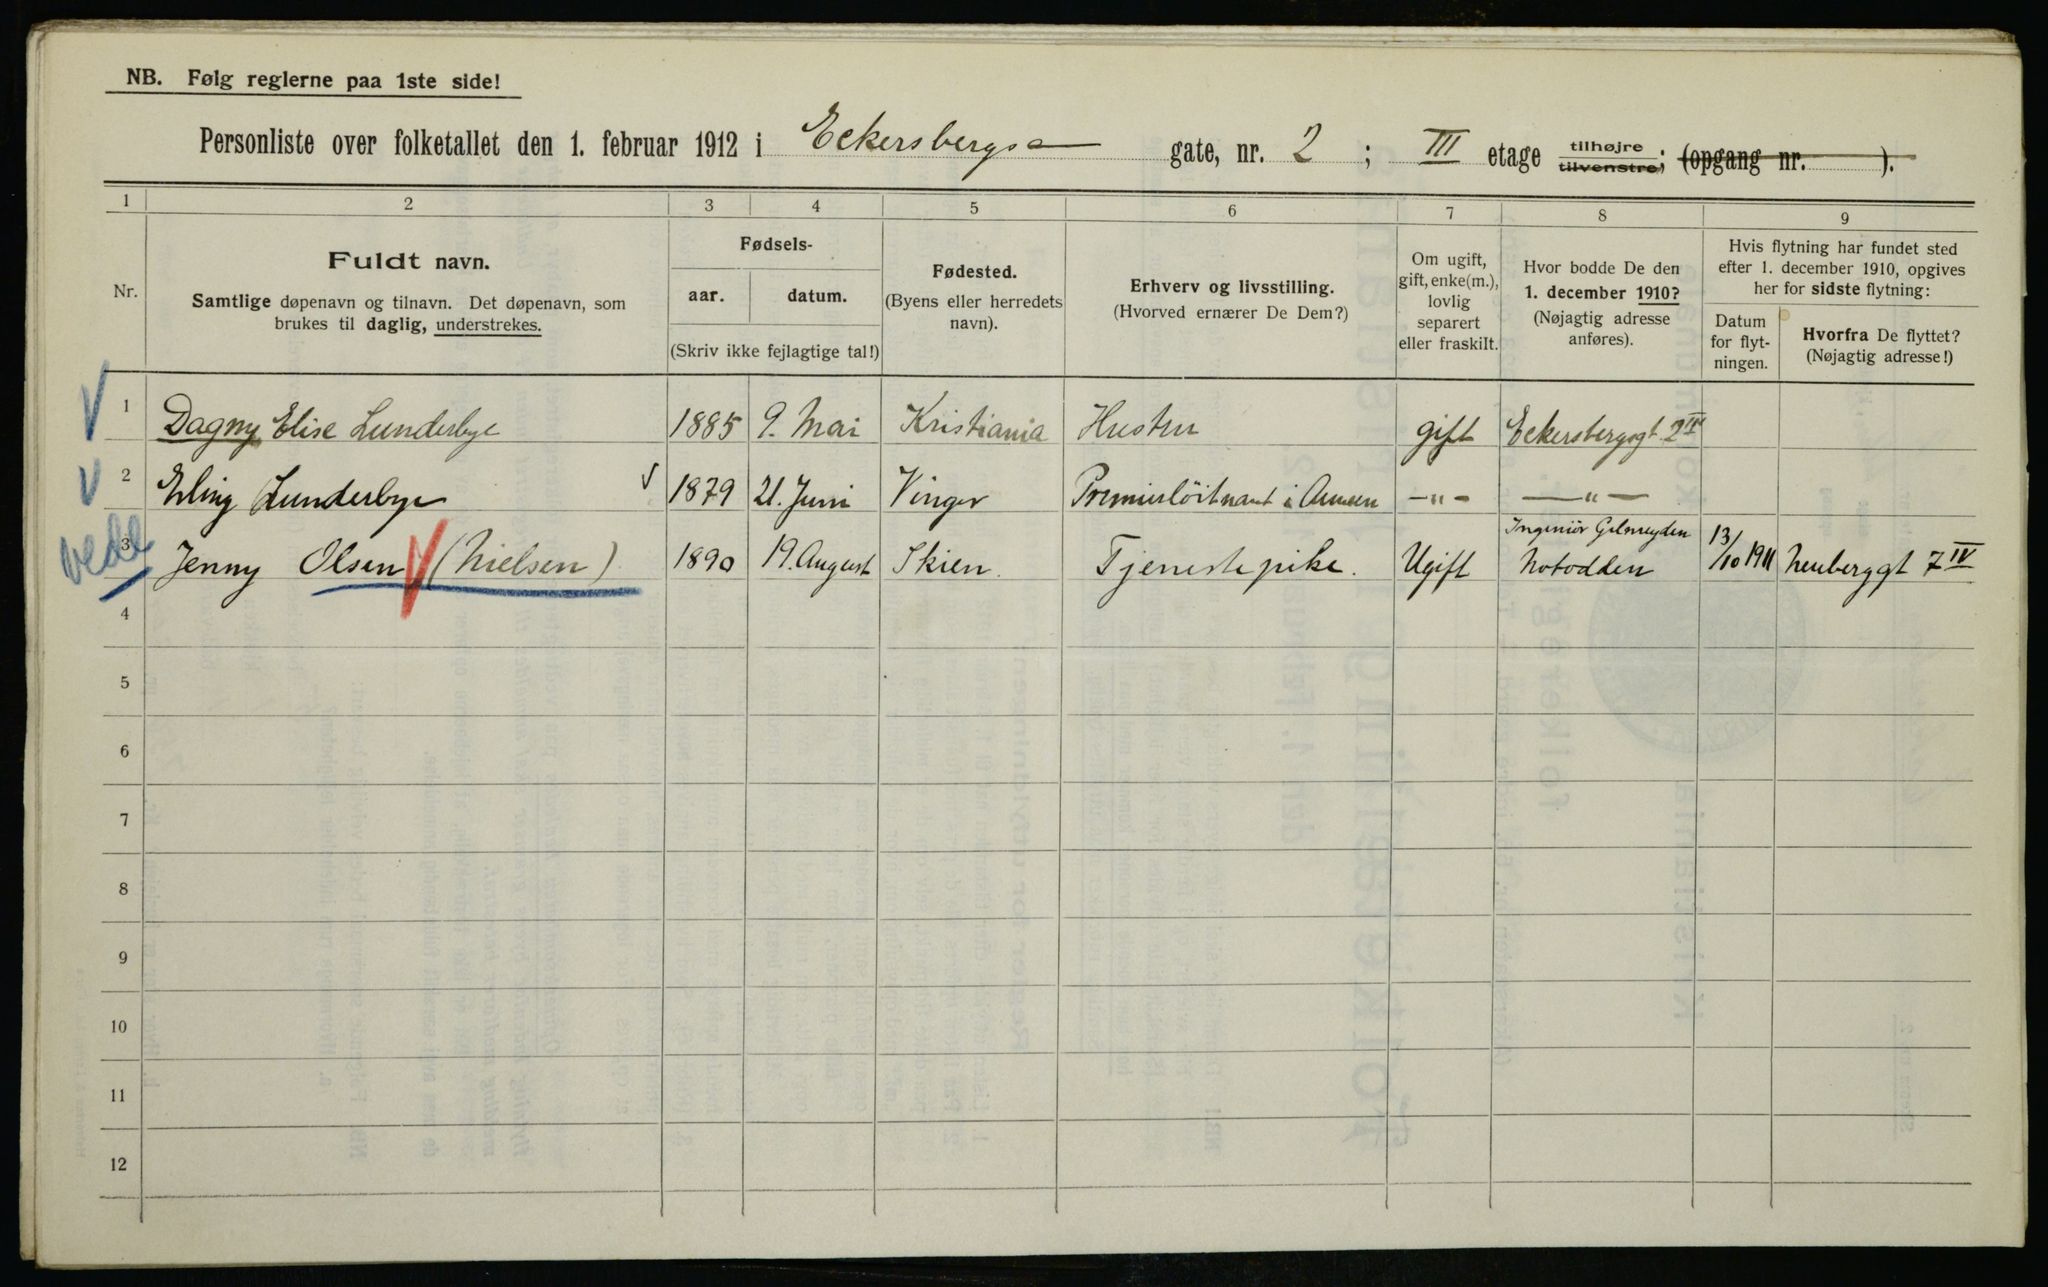 NB. Følg reglerne paa 1ste side!
Personliste over folketallet den 1. februar 1912 i Eckersbergs gate, nr. 2 ; III etage tilhøjre tilvenstre; (opgang nr. ).
1 2 3 4 5 6 7 8 9
Nr.
Fuldt navn.
Samtlige døpenavn og tilnavn. Det døpenavn, som
brukes til daglig, understrekes.
Fødsels-
aar. datum.
(Skriv ikke fejlagtige tal!)
Fødested.
(Byens eller herredets
navn).
Erhverv og livsstilling.
(Hvorved ernærer De Dem?)
Om ugift,
gift, enke(m.),
lovlig
separert
eller fraskilt.
Hvor bodde De den
1. december 1910?
(Nøjagtig adresse
anføres).
Hvis flytning har fundet sted
efter 1. december 1910, opgives
her for sidste flytning:
Datum
for flyt-
ningen.
Hvorfra De flyttet?
(Nøjagtig adresse!)
1 Dagny Elise Lunderbye 1885 9. Mai Kristiania Hustru gift Eckersbergsgt. 2 III
2 Erling Lunderbye 1879 21. Juni Vinger Premierløitnant i Armeen —"— —"—
3 Jenny Olsen (Nielsen) 1890 19. August Skien. Tjenestepike. Ugift Ingeniør Notodden 13/10 1911 Neuberggt 7 IV
4
5
6
7
8
9
10
11
12